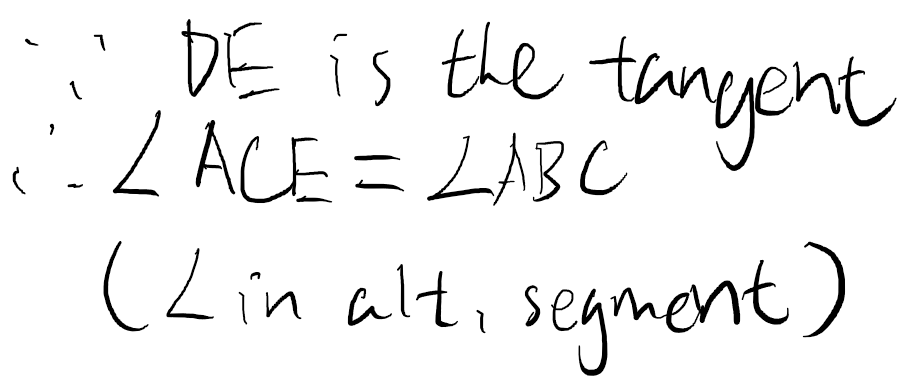 ∵ DE is the tangent
∴ ∠ACE = ∠ABC
(∠ in alt. segment)